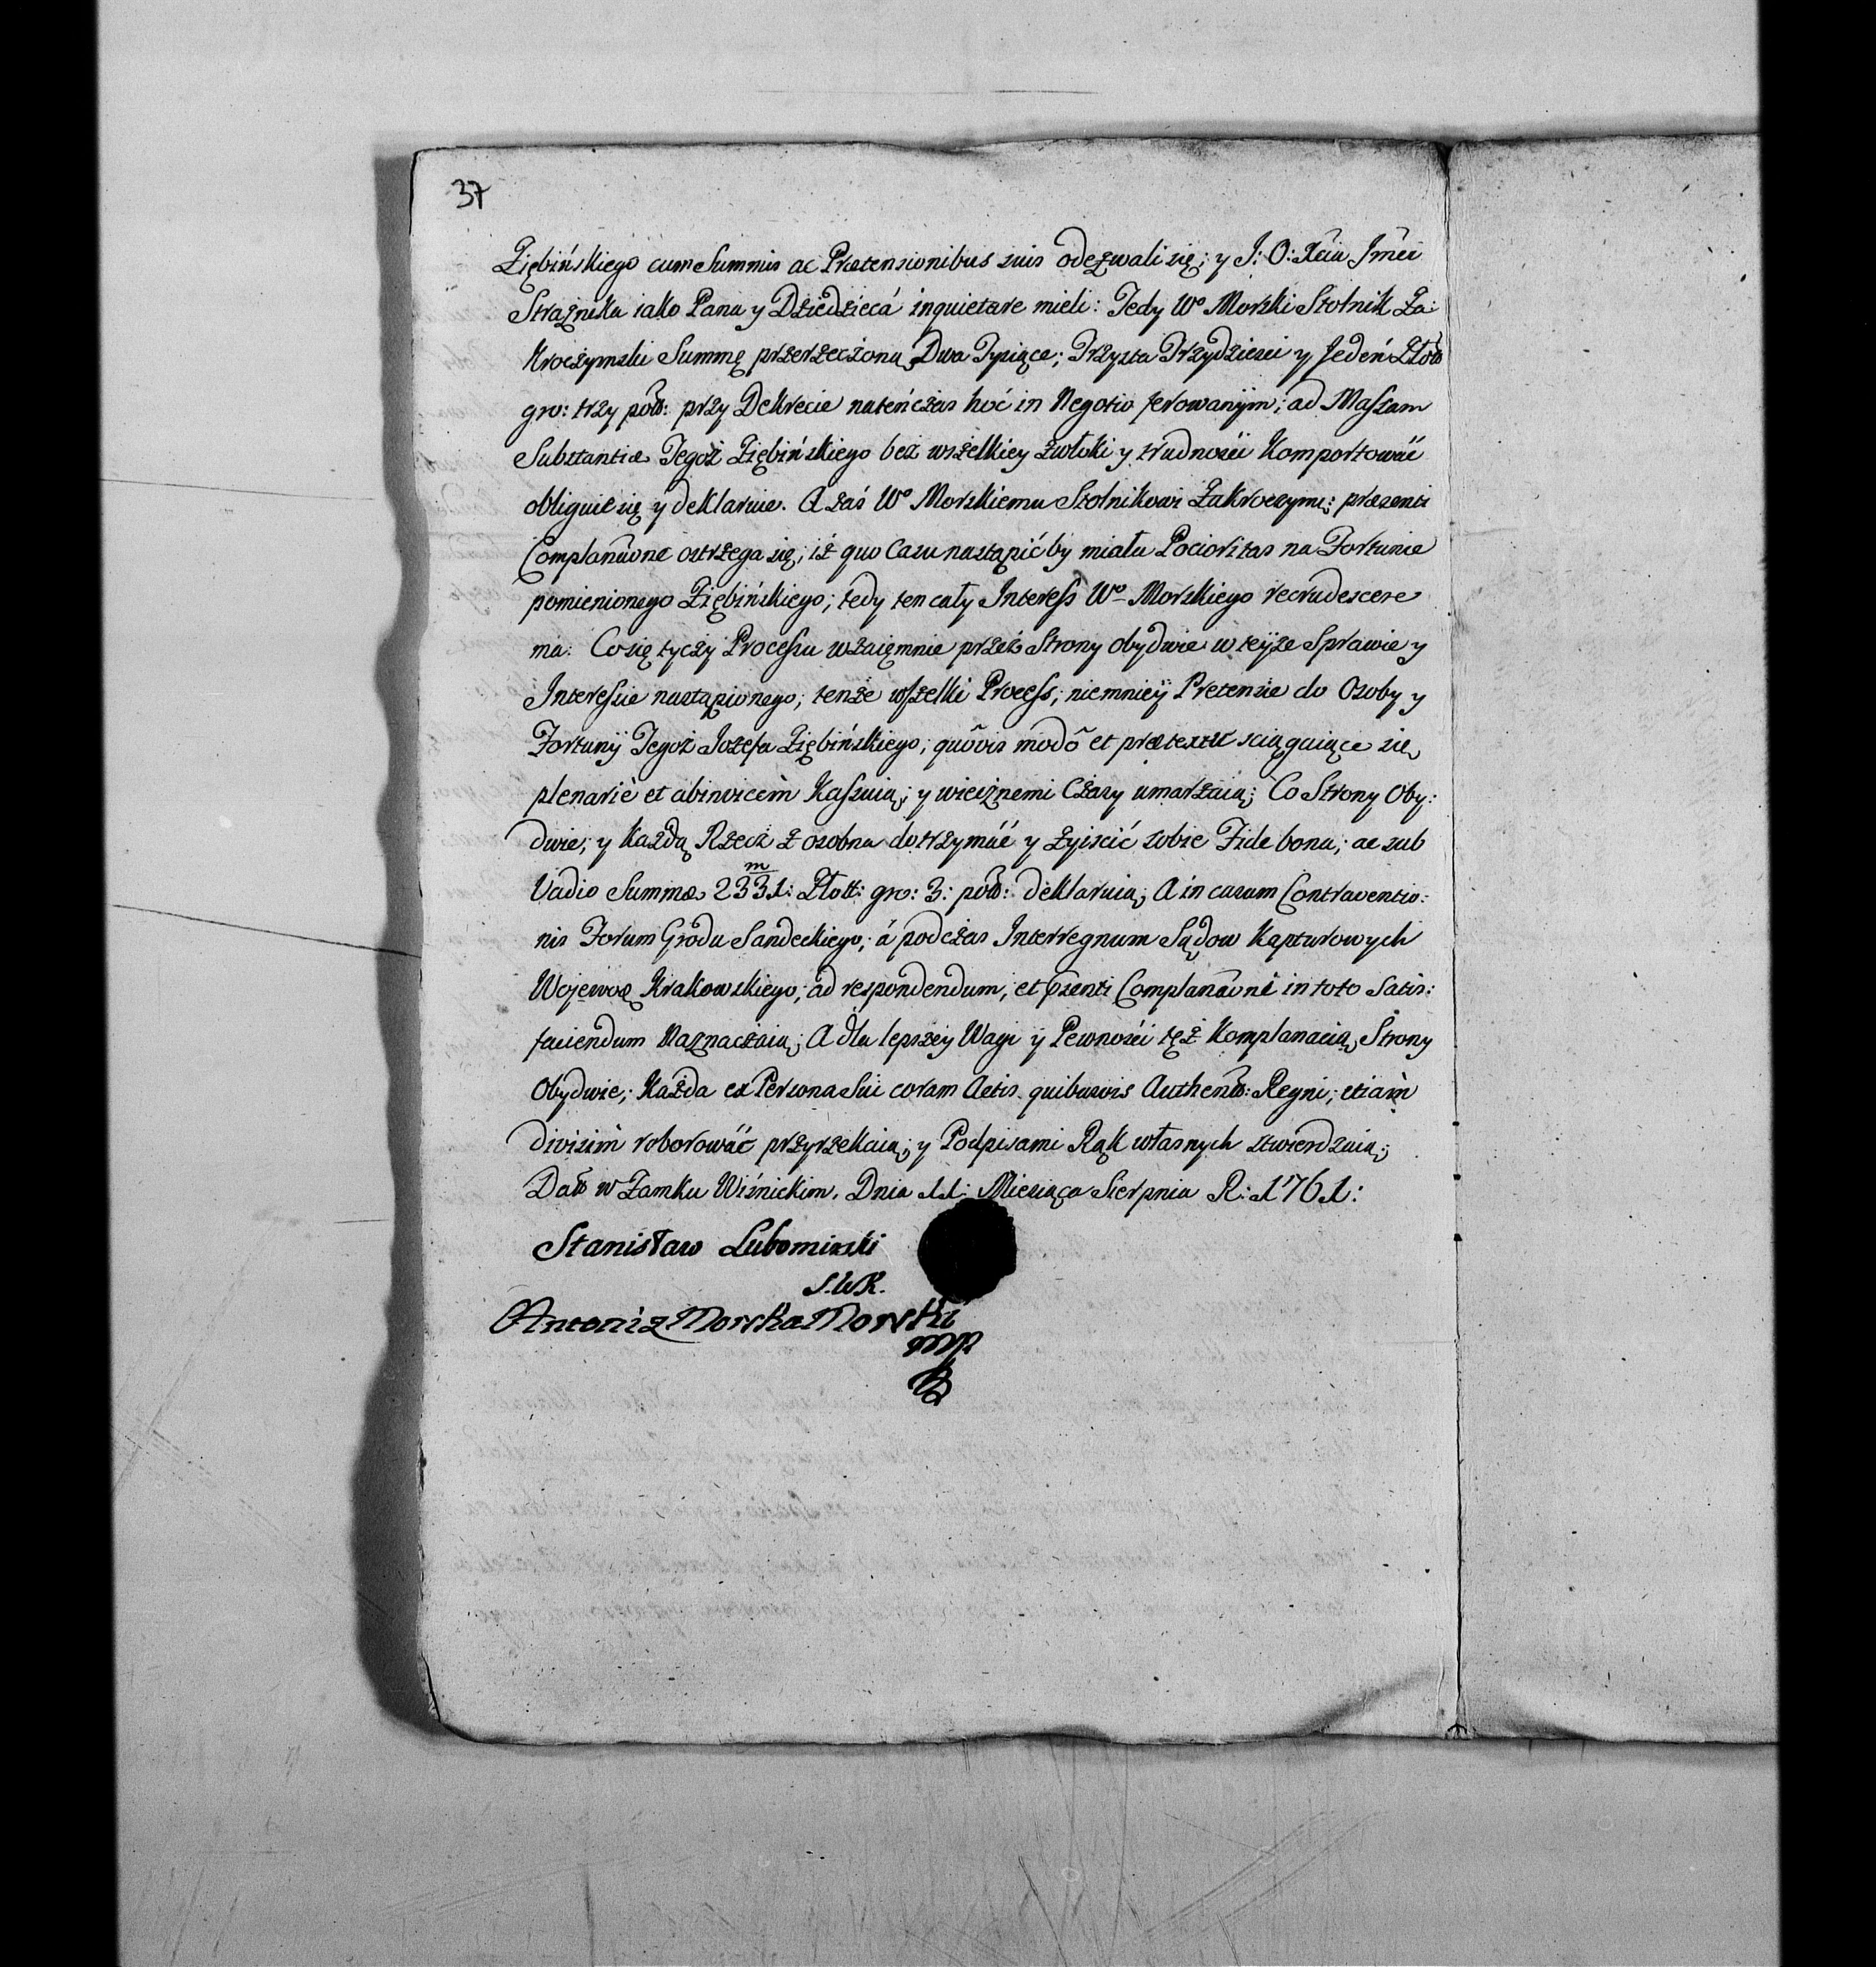 37
Ziębińskiego cum Summis ac Prætensionibus suis odezwali się; y J: O: Xcia Jmci
Strażnika iako Pana y Dziedzica inquietare mieli: Tedy Wo Morski Stolnik Za:
Kroczymski Summę przerzeczoną Dwa Tysiące; Trzysta Trzydziesci y Jeden Złott
gro: trzy poltt: przy Dekrecie nateńczas hoć in Negotio ferowanÿm; ad Massam
Substantiæ Tegoż Ziębińskiego bez wszelkiey zwłoki y trudności Komportować
obliguie się y deklaruie. A zaś Wo Morskiemu Stolnikowi Zakroczym: præsenti
Complanaone ostrzega się; iż quo Casu nastąpić by miała Pocioritas na Fortunie
pomienionego Ziębińskiego; tedy ten cały Interess Wo Morskiego recrudescere
ma. Co się tyczÿ Processu wzaięmnie przez Strony obydwie w teÿże Sprawie y
Interessie nastąpionego; tenże wszelki Process; niemnieÿ Pretensie do Osoby y
Fortunÿ Tegoż Jozefa Ziębińskiego; quôvis modô et prætextu sciągaiące się
plenariè et abinvicem Kassuią; y wiecznemi Czasy umarzaią; Co Strony Oby:
dwie; y Każdą Rzecz z osobna dotrzymać y zyiscić sobie Fide bona; ac sub
Vadio Summæ 2331: m Złott: gro: 3: poltt: deklaruią; A in casum Contraventio:
nis Forum Grodu Sandeckiego; á podczas Interregnum Sądow Kapturowych
Wojewoę Krakowskiego; ad respondendum; et psenti Complanaoni in toto Satis:
faciendum Naznaczaią; A dla lepszey Wagi ÿ Pewności tęż Komplanacią, Strony
Obydwie; Każda ex Persona Sui coram Actis quibusvis Authentt: Regni; etiam
divisim roborować przyrzekaią; y Podpisami Rąk własnych ztwierdzaią;
Datt w Zamku Wiśnickim. Dnia 11: Miesiąca Sierpnia R: 1761:
Stanisław Lubomirski
S.WK.
Antoni z Morska Morski
mp